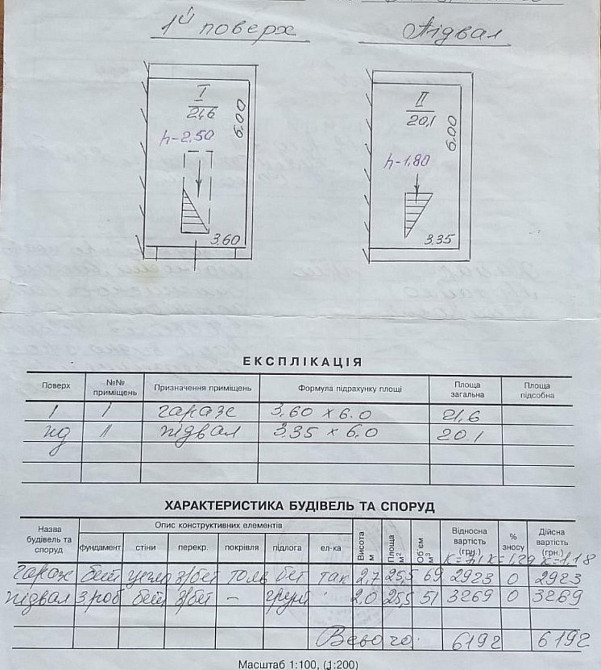 1й поверх
Підвал
I
21,6
6.00
h-2,50
3.60
II
20,1
6.00
h-1,80
3.35
ЕКСПЛІКАЦІЯ
Поверх №№ приміщень Призначення приміщень Формула підрахунку площі Площа загальна Площа підсобна
1 I гараж 3,60 x 6.0 21,6
пд II підвал 3.35 x 6.0 20,1
ХАРАКТЕРИСТИКА БУДІВЕЛЬ ТА СПОРУД
Назва будівель та споруд Опис конструктивних елементів Висота м Площа м² Об'єм м³ Відносна вартість (грн.) % зносу Дійсна вартість (грн.)
фундамент стіни перекр. покрівля підлога ел-ка
гараж бет цегла з/бет толь бет так 2,7 25,5 69 2923 0 2923
підвал з роб бет з/бет – ґрунт 2.0 25,5 51 3269 0 3269
Всього: 6192 6192
Масштаб 1:100, (1:200)